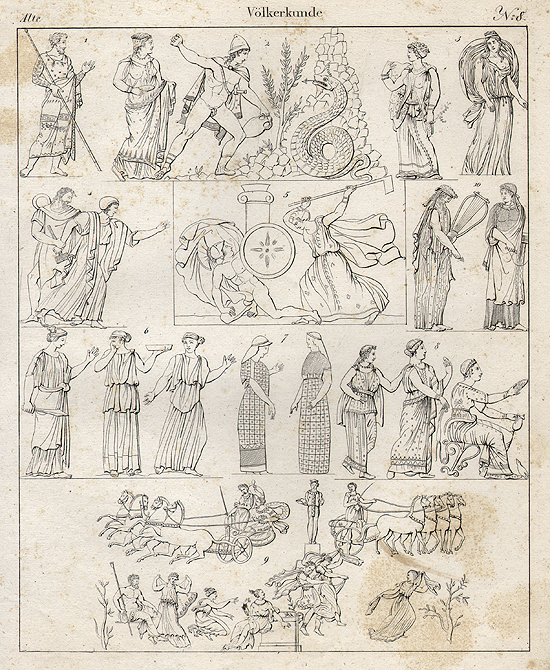 Alte Völkerkunde No: 8.
1 2 3
4 5 10
6 7 8
9